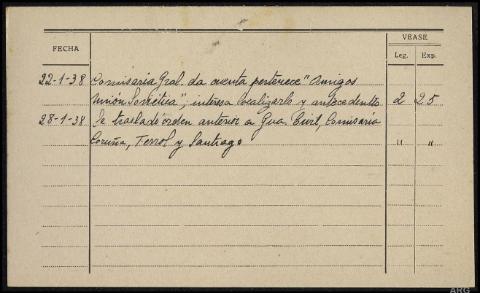 VEASE
FECHA
Leg. Exp.
22-1-38 Comisaria Gral. da cuenta pertenece "Amigos
Unión Sovietica", interesa localizarlo y antecedentes 2 25
28-1-38 Se trasladó orden anterior a Gua. Civil, Comisaria
Coruña, Ferrol y Santiago " "
ARG